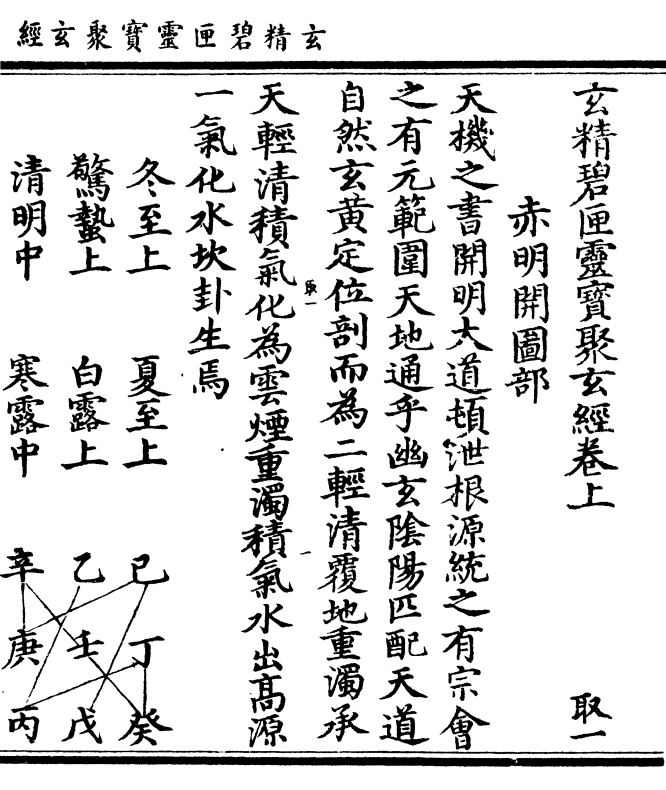 玄精碧匣靈寶聚玄經
玄精碧匣靈寶聚玄經卷上　取一
赤明開圖部
天機之書開明大道頓泄根源統之有宗會
之有元範圍天地通乎幽玄陰陽匹配天道
自然玄黃定位剖而為二輕清覆地重濁承
取一
天輕清積氣化為雲煙重濁積氣水出高源
一氣化水坎卦生焉
冬至上　夏至上　已丁癸
驚蟄上　白露上　乙壬戊
清明中　寒露中　辛庚丙